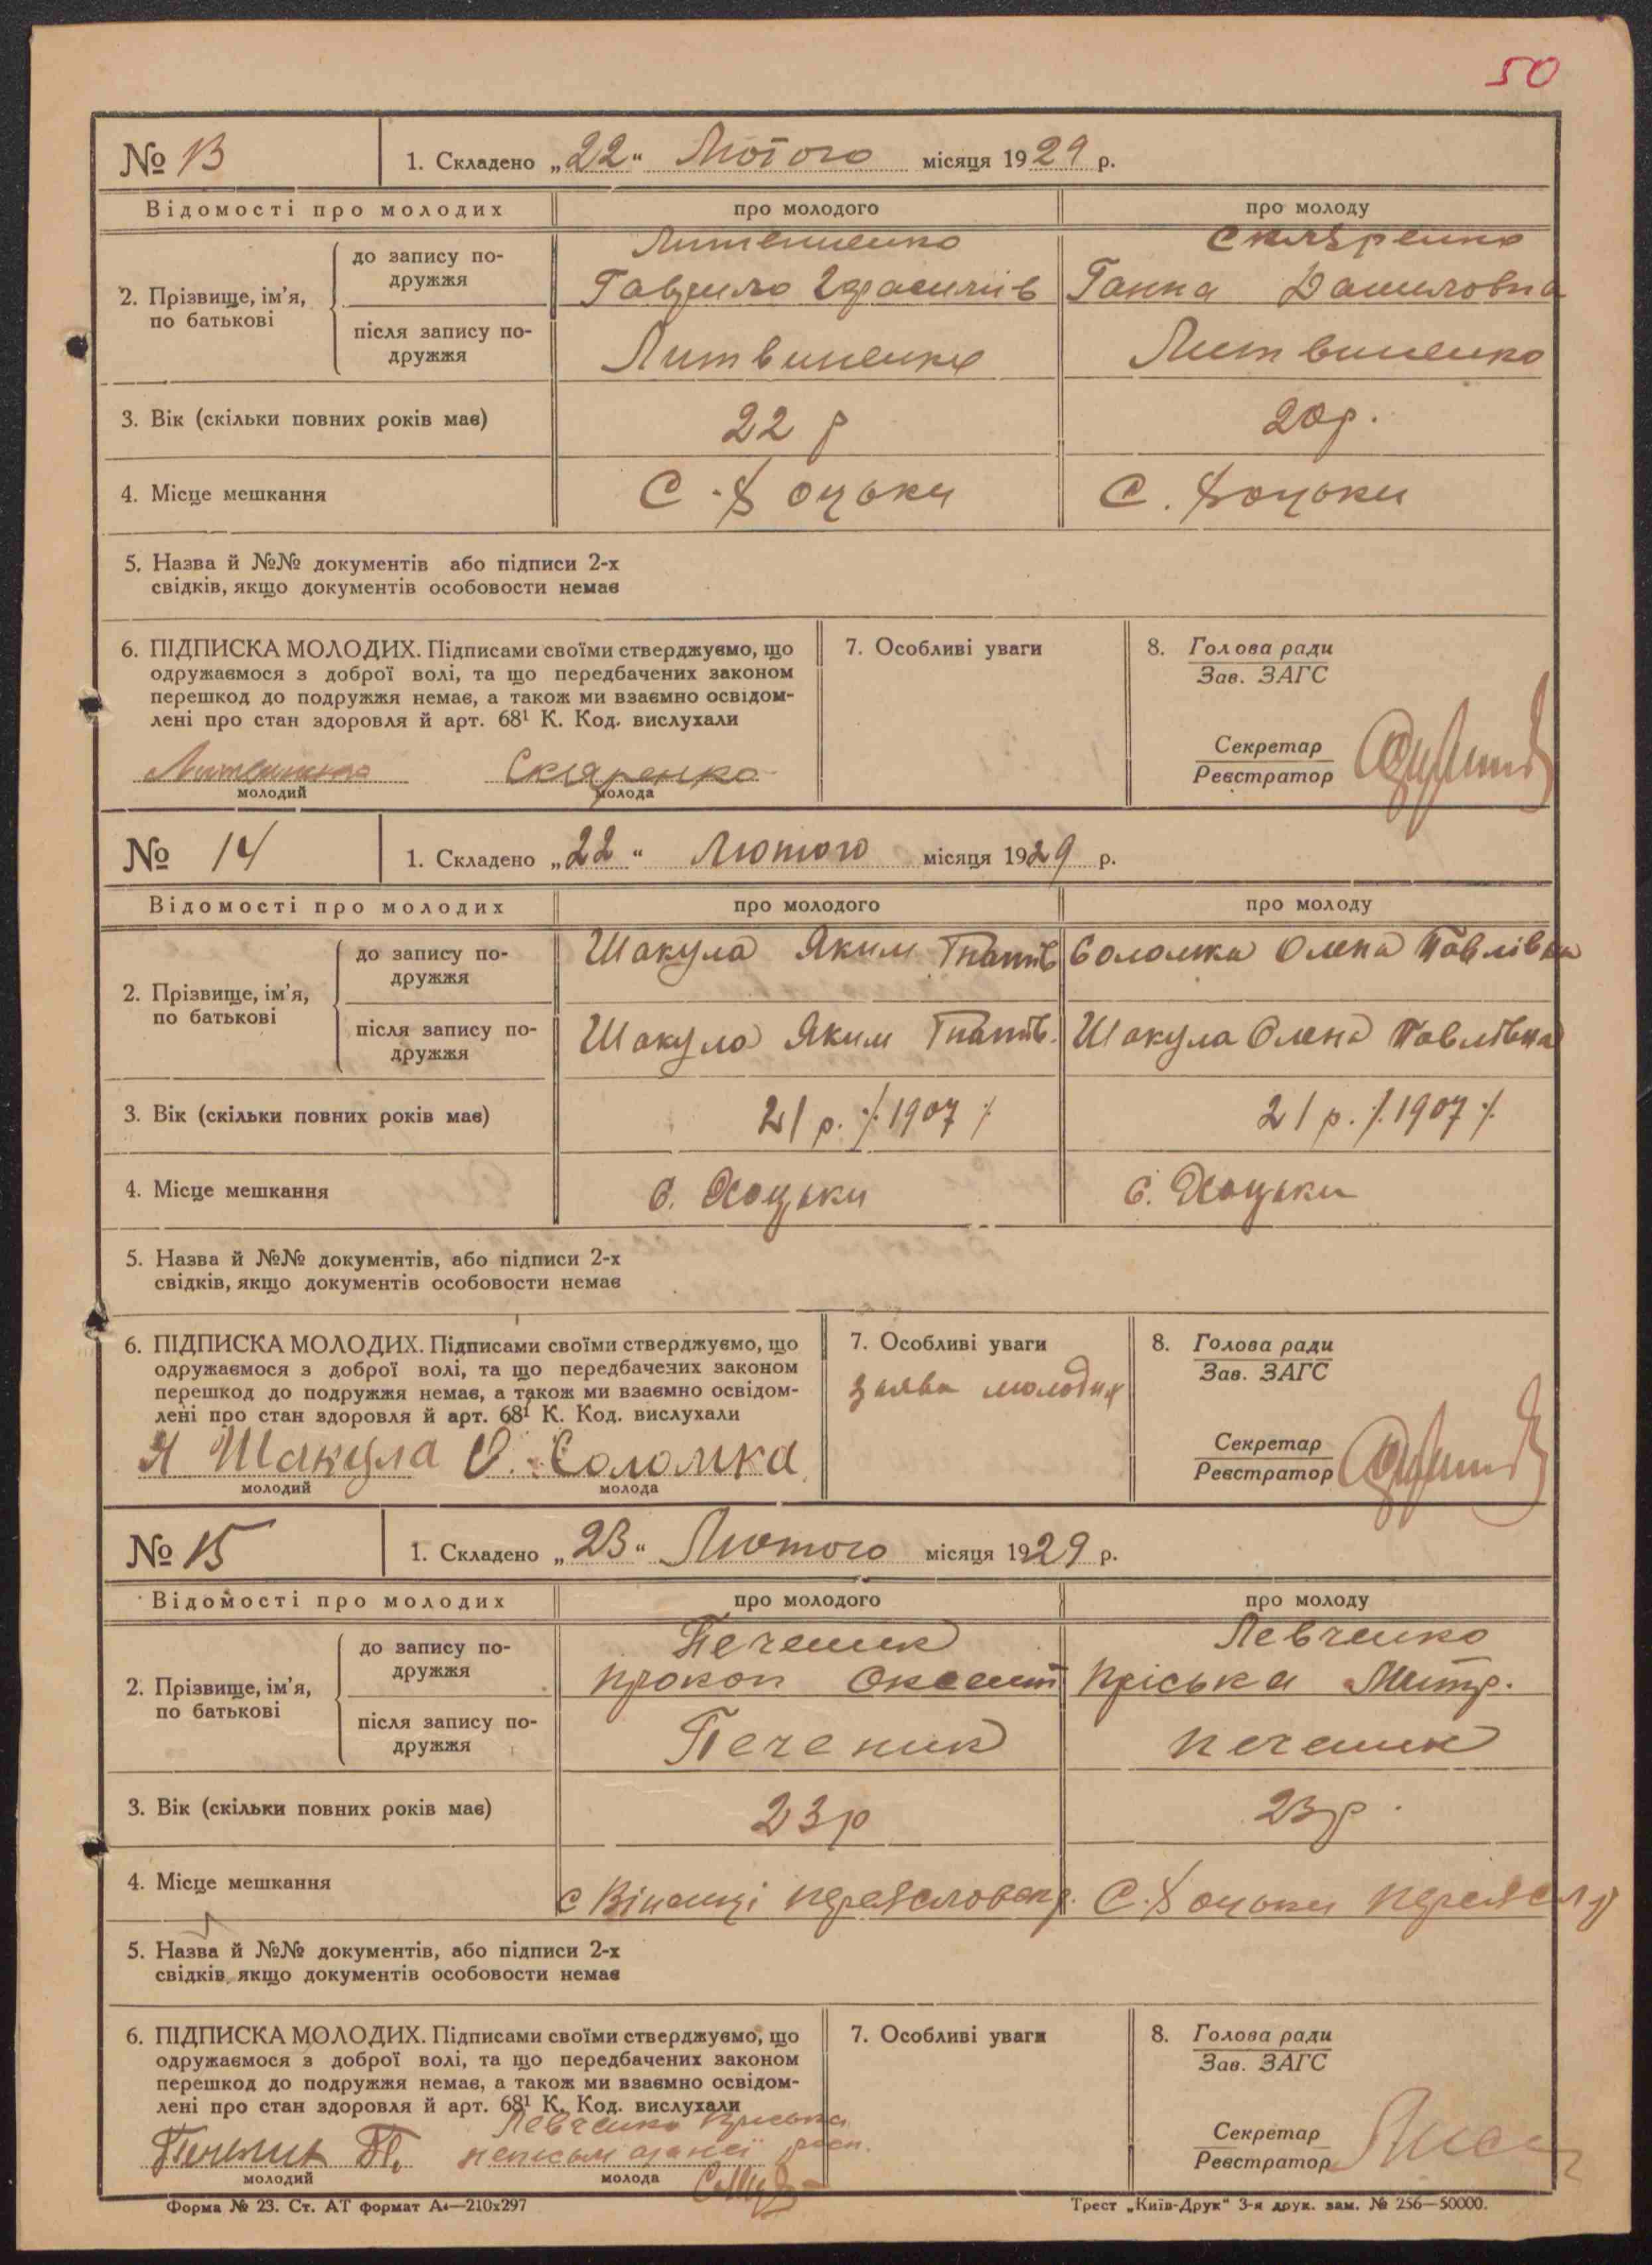 50
№ 13 1. Складено „22“ Лютого місяця 1929 р.
Відомості про молодих про молодого про молоду
до запису по-
дружжя
Литвиненко Скляренко
2. Прізвище, ім’я,
по батькові
Гаврило Ганна Даниловна
після запису по-
дружжя
Литвиненко Литвиненко
3. Вік (скільки повних років має) 22 р 20р.
4. Місце мешкання С. Хоцьки С. Хоцьки
5. Назва й №№ документів або підписи 2-х
свідків, якщо документів особовости немає
6. ПІДПИСКА МОЛОДИХ. Підписами своїми стверджуємо, що
одружаємося з доброї волі, та що передбачених законом
перешкод до подружжя немає, а також ми взаємно освідом-
лені про стан здоровля й арт. 68¹ К. Код. вислухали
Литвиненко Скляренко
молодий молода
7. Особливі уваги
8. Голова ради
Зав. ЗАГС
Секретар
Реєстратор
№ 14 1. Складено „22“ Лютого місяця 1929 р.
Відомості про молодих про молодого про молоду
2. Прізвище, ім’я,
по батькові
до запису по-
дружжя
Шакула Яким Гнатів Соломка Олена Павлівна
після запису по-
дружжя
Шакула Яким Гнатів. Шакула Олена Павлівна
3. Вік (скільки повних років має) 21 р. /.1907 /. 21 р. /.1907 /.
4. Місце мешкання С. Хоцьки С. Хоцьки
5. Назва й №№ документів, або підписи 2-х
свідків, якщо документів особовости немає
6. ПІДПИСКА МОЛОДИХ. Підписами своїми стверджуємо, що
одружаємося з доброї волі, та що передбачених законом
перешкод до подружжя немає, а також ми взаємно освідом-
лені про стан здоровля й арт. 68¹ К. Код. вислухали
Я Шакула О. Соломка
молодий молода
7. Особливі уваги
заява молодих
8. Голова ради
Зав. ЗАГС
Секретар
Реєстратор
№ 15 1. Складено „23“ Лютого місяця 1929 р.
Відомості про молодих про молодого про молоду
до запису по-
дружжя
Печеник Левченко
2. Прізвище, ім’я,
по батькові
Прокоп Оксент Пріська Митр.
після запису по-
дружжя
Печеник Печеник
3. Вік (скільки повних років має) 23р 23р.
4. Місце мешкання с Віненці С. Хоцьки
5. Назва й №№ документів, або підписи 2-х
свідків, якщо документів особовости немає
6. ПІДПИСКА МОЛОДИХ. Підписами своїми стверджуємо, що
одружаємося з доброї волі, та що передбачених законом
перешкод до подружжя немає, а також ми взаємно освідом-
лені про стан здоровля й арт. 68¹ К. Код. вислухали
Левченко Пріська
Печеник П.
молодий молода
7. Особливі уваги
8. Голова ради
Зав. ЗАГС
Секретар
Реєстратор
Форма № 23. Ст. АТ формат А₄—210x297 Трест „Київ-Друк“ 3-я друк. зам. № 256—50000.